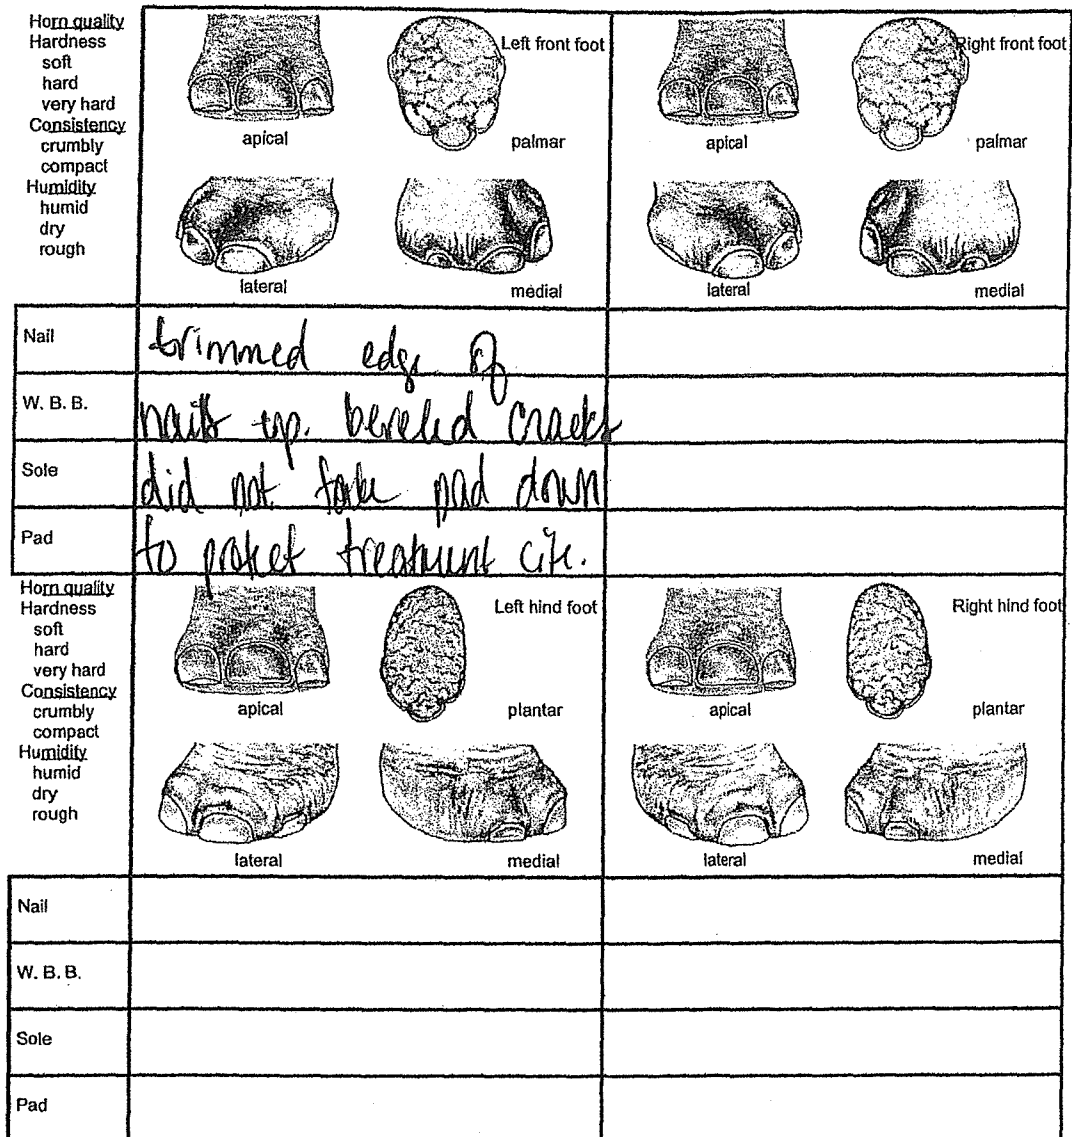 Horn quality
Hardness
soft
hard
very hard
Consistency
crumbly
compact
Humidity
humid
dry
rough
Left front foot
apical
palmar
lateral
medial
Right front foot
apical
palmar
lateral
medial
Nail
trimmed edge of
W. B. B.
nails up. beveled cracks
Sole
did not take pad down
Pad
to protect treatment cite.
Horn quality
Hardness
soft
hard
very hard
Consistency
crumbly
compact
Humidity
humid
dry
rough
Left hind foot
apical
plantar
lateral
medial
Right hind foot
apical
plantar
lateral
medial
Nail
W. B. B.
Sole
Pad